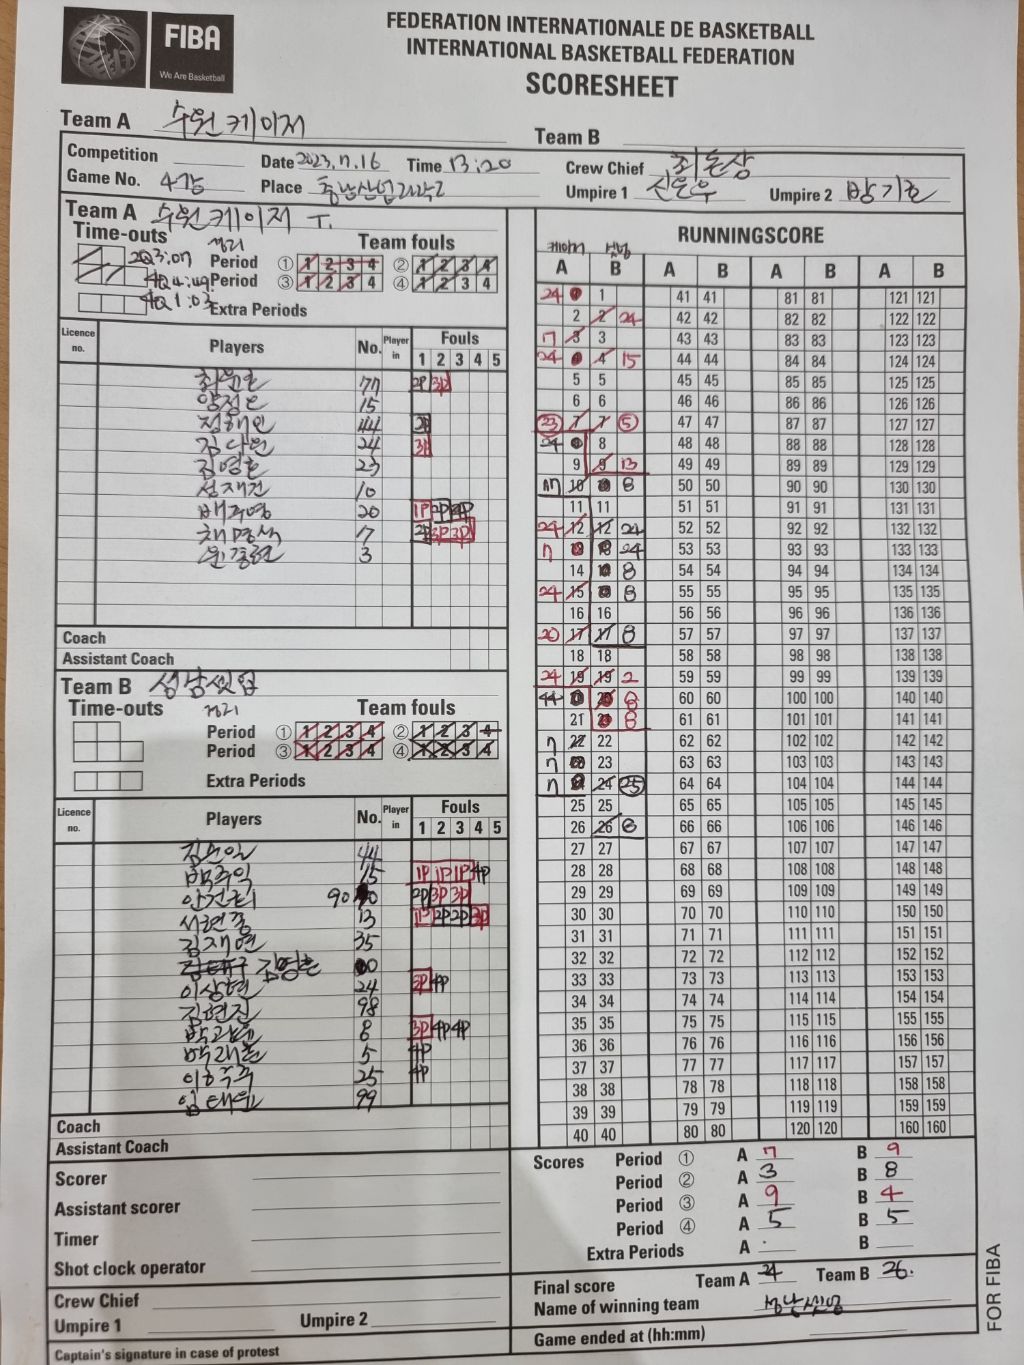 FIBA
We Are Basketball
FEDERATION INTERNATIONALE DE BASKETBALL
INTERNATIONAL BASKETBALL FEDERATION
SCORESHEET
Team A 수원 케이저
Team B
Competition
Date 2023.11.16 Time 13:20
Crew Chief
Game No. 4강
Place
Umpire 1
Umpire 2 방기호
Team A 수원케이저 T.
Time-outs
Team fouls
Period ① 1 2 3 4 ② 1 2 3 4
Period ③ 1 2 3 4 ④ 1 2 3 4
2Q3:07
4Q4:49
4Q1:03
Extra Periods
Licence no. Players No. Player in Fouls 1 2 3 4 5
77 2P 3P
15
정해인 44 2P
김낙원 24 3P
김영훈 23
성재건 10
배주영 20 1P 2P 4P
7 2P 3P 3P
3
Coach
Assistant Coach
Team B
Time-outs
Team fouls
Period ① 1 2 3 4 ② 1 2 3 4
Period ③ 1 2 3 4 ④ 1 2 3 4
Extra Periods
Licence no. Players No. Player in Fouls 1 2 3 4 5
44
15 1P 1P 1P 4P
90 2P 3P 3P
13 1P 2P 2P 3P
김재현 35
김영훈
이상현 24 3P 4P
김현진 98
8 3P 4P 4P
5 4P
25 4P
99
Coach
Assistant Coach
Scorer
Assistant scorer
Timer
Shot clock operator
Crew Chief
Umpire 1
Umpire 2
Captain's signature in case of protest
RUNNINGSCORE
A B A B A B A B
24 1 1 41 41 81 81 121 121
2 2 24 42 42 82 82 122 122
7 3 3 43 43 83 83 123 123
24 4 4 15 44 44 84 84 124 124
5 5 45 45 85 85 125 125
6 6 46 46 86 86 126 126
23 7 7 5 47 47 87 87 127 127
24 8 8 48 48 88 88 128 128
9 9 13 49 49 89 89 129 129
77 10 10 8 50 50 90 90 130 130
11 11 51 51 91 91 131 131
24 12 12 24 52 52 92 92 132 132
7 13 13 24 53 53 93 93 133 133
14 14 8 54 54 94 94 134 134
24 15 15 8 55 55 95 95 135 135
16 16 56 56 96 96 136 136
20 17 17 8 57 57 97 97 137 137
18 18 58 58 98 98 138 138
24 19 19 2 59 59 99 99 139 139
44 20 20 8 60 60 100 100 140 140
21 21 8 61 61 101 101 141 141
7 22 22 62 62 102 102 142 142
7 23 23 63 63 103 103 143 143
7 24 24 25 64 64 104 104 144 144
25 25 65 65 105 105 145 145
26 26 8 66 66 106 106 146 146
27 27 67 67 107 107 147 147
28 28 68 68 108 108 148 148
29 29 69 69 109 109 149 149
30 30 70 70 110 110 150 150
31 31 71 71 111 111 151 151
32 32 72 72 112 112 152 152
33 33 73 73 113 113 153 153
34 34 74 74 114 114 154 154
35 35 75 75 115 115 155 155
36 36 76 76 116 116 156 156
37 37 77 77 117 117 157 157
38 38 78 78 118 118 158 158
39 39 79 79 119 119 159 159
40 40 80 80 120 120 160 160
Scores Period ① A 7 B 9
Period ② A 3 B 8
Period ③ A 9 B 4
Period ④ A 5 B 5
Extra Periods A B
Final score Team A 24 Team B 26.
Name of winning team
Game ended at (hh:mm)
FOR FIBA